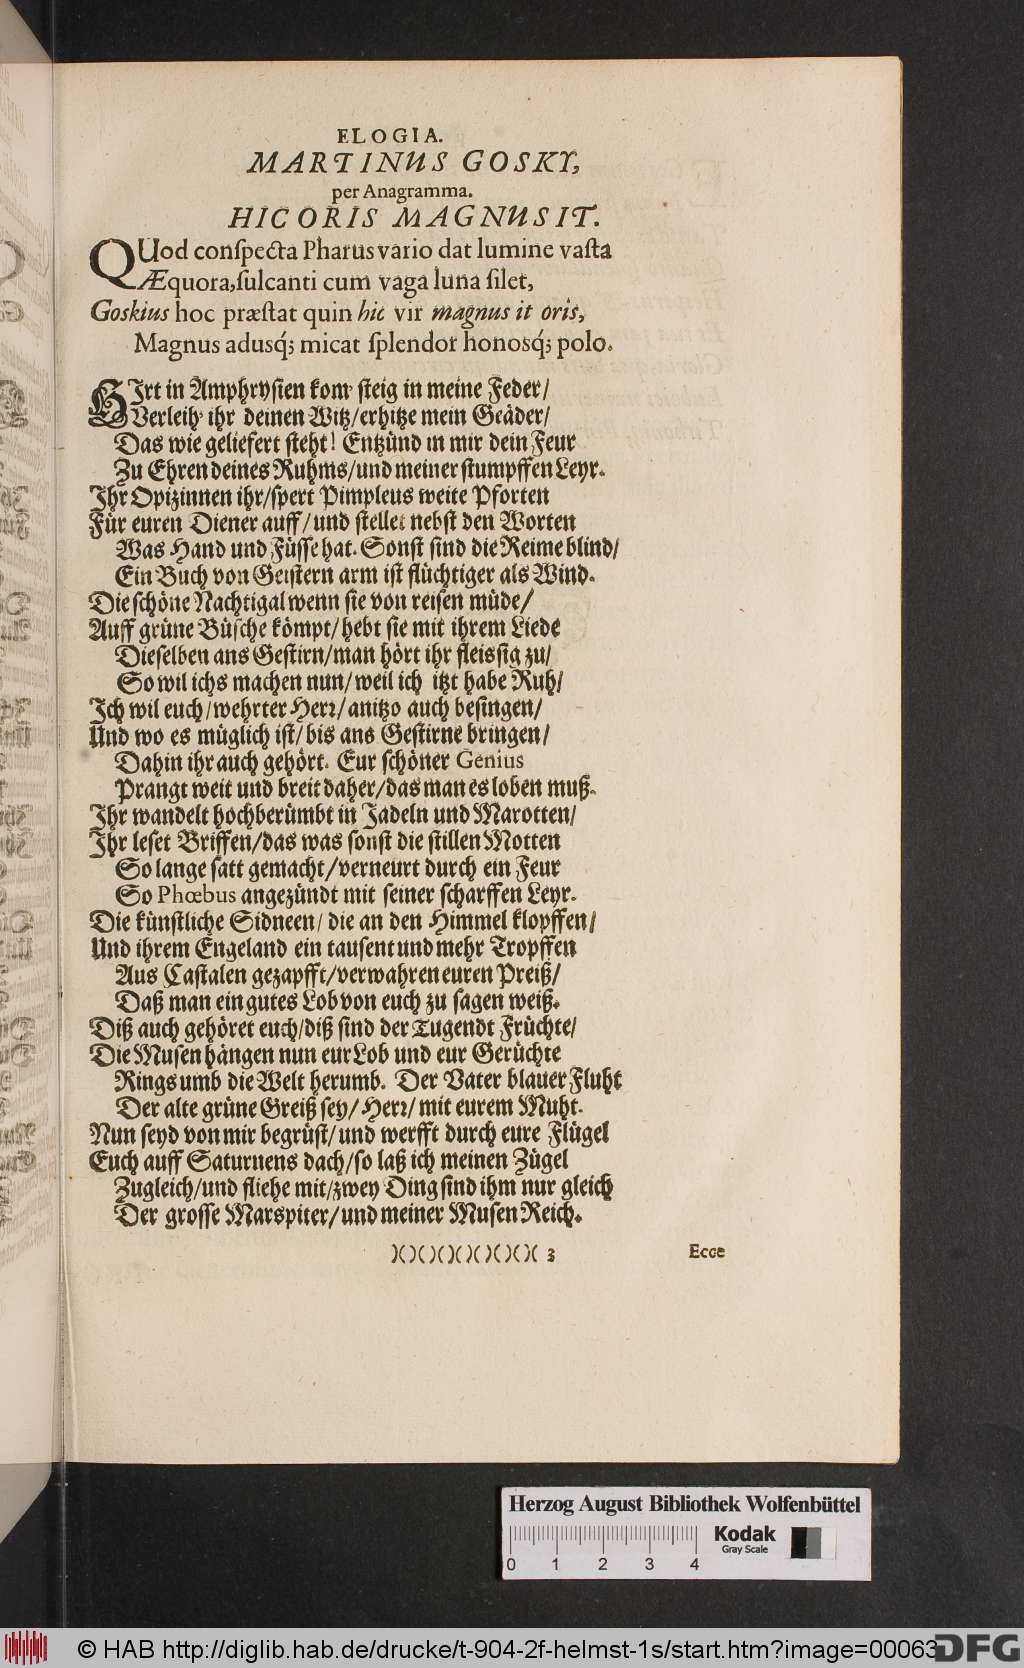 ELOGIA.
MARTINUS GOSKY,
per Anagramma.
HIC ORIS MAGNUS IT.
QUod conſpecta Pharus vario dat lumine vaſta
Æquora, ſulcanti cum vaga luna ſilet,
Goskius hoc præſtat quin hic vir magnus it oris,
Magnus adusq́; micat ſplendor honosq́; polo.
HIrt in Amphrysien kom' steig in meine Feder/
Verleih' ihr deinen Witz/erhitze mein Geäder/
Das wie geliefert steht! Entzünd in mir dein Feur
Zu Ehren deines Ruhms/und meiner stumpffen Leyr.
Ihr Opizinnen ihr/spert Pimpleus weite Pforten
Für euren Diener auff/und stellet nebst den Worten
Was Hand und Füsse hat. Sonst sind die Reime blind/
Ein Buch von Geistern arm ist flüchtiger als Wind.
Die schöne Nachtigal wenn sie von reisen müde/
Auff grüne Büsche kömpt/hebt sie mit ihrem Liede
Dieselben ans Gestirn/man hört ihr fleissig zu/
So wil ichs machen nun/weil ich itzt habe Ruh/
Ich wil euch/wehrter Herꝛ/anitzo auch besingen/
Und wo es müglich ist/bis ans Gestirne bringen/
Dahin ihr auch gehört. Eur schöner Genius
Prangt weit und breit daher/das man es loben muß.
Ihr wandelt hochberümbt in Jadeln und Marotten/
Ihr leset Briffen/das was sonst die stillen Motten
So lange satt gemacht/verneurt durch ein Feur
So Phœbus angezündt mit seiner scharffen Leyr.
Die künstliche Sidneen/die an den Himmel klopffen/
Und ihrem Engeland ein tausent und mehr Tropffen
Aus Castalen gezapfft/verwahren euren Preiß/
Daß man ein gutes Lob von euch zu sagen weiß.
Diß auch gehöret euch/diß sind der Tugendt Früchte/
Die Musen hängen nun eur Lob und eur Gerüchte
Rings umb die Welt herumb. Der Vater blauer Fluht
Der alte grüne Greiß sey/Herꝛ/mit eurem Muht.
Nun seyd von mir begrüst/und werfft durch eure Flügel
Euch auff Saturnens dach/so laß ich meinen Zügel
Zugleich/und fliehe mit/zwey Ding sind ihm nur gleich
Der grosse Marspiter/und meiner Musen Reich.
)()()()()()()()( 3 Ecce
Herzog August Bibliothek Wolfenbüttel
Kodak
Gray Scale
0 1 2 3 4
© HAB http://diglib.hab.de/drucke/t-904-2f-helmst-1s/start.htm?image=00063
DFG